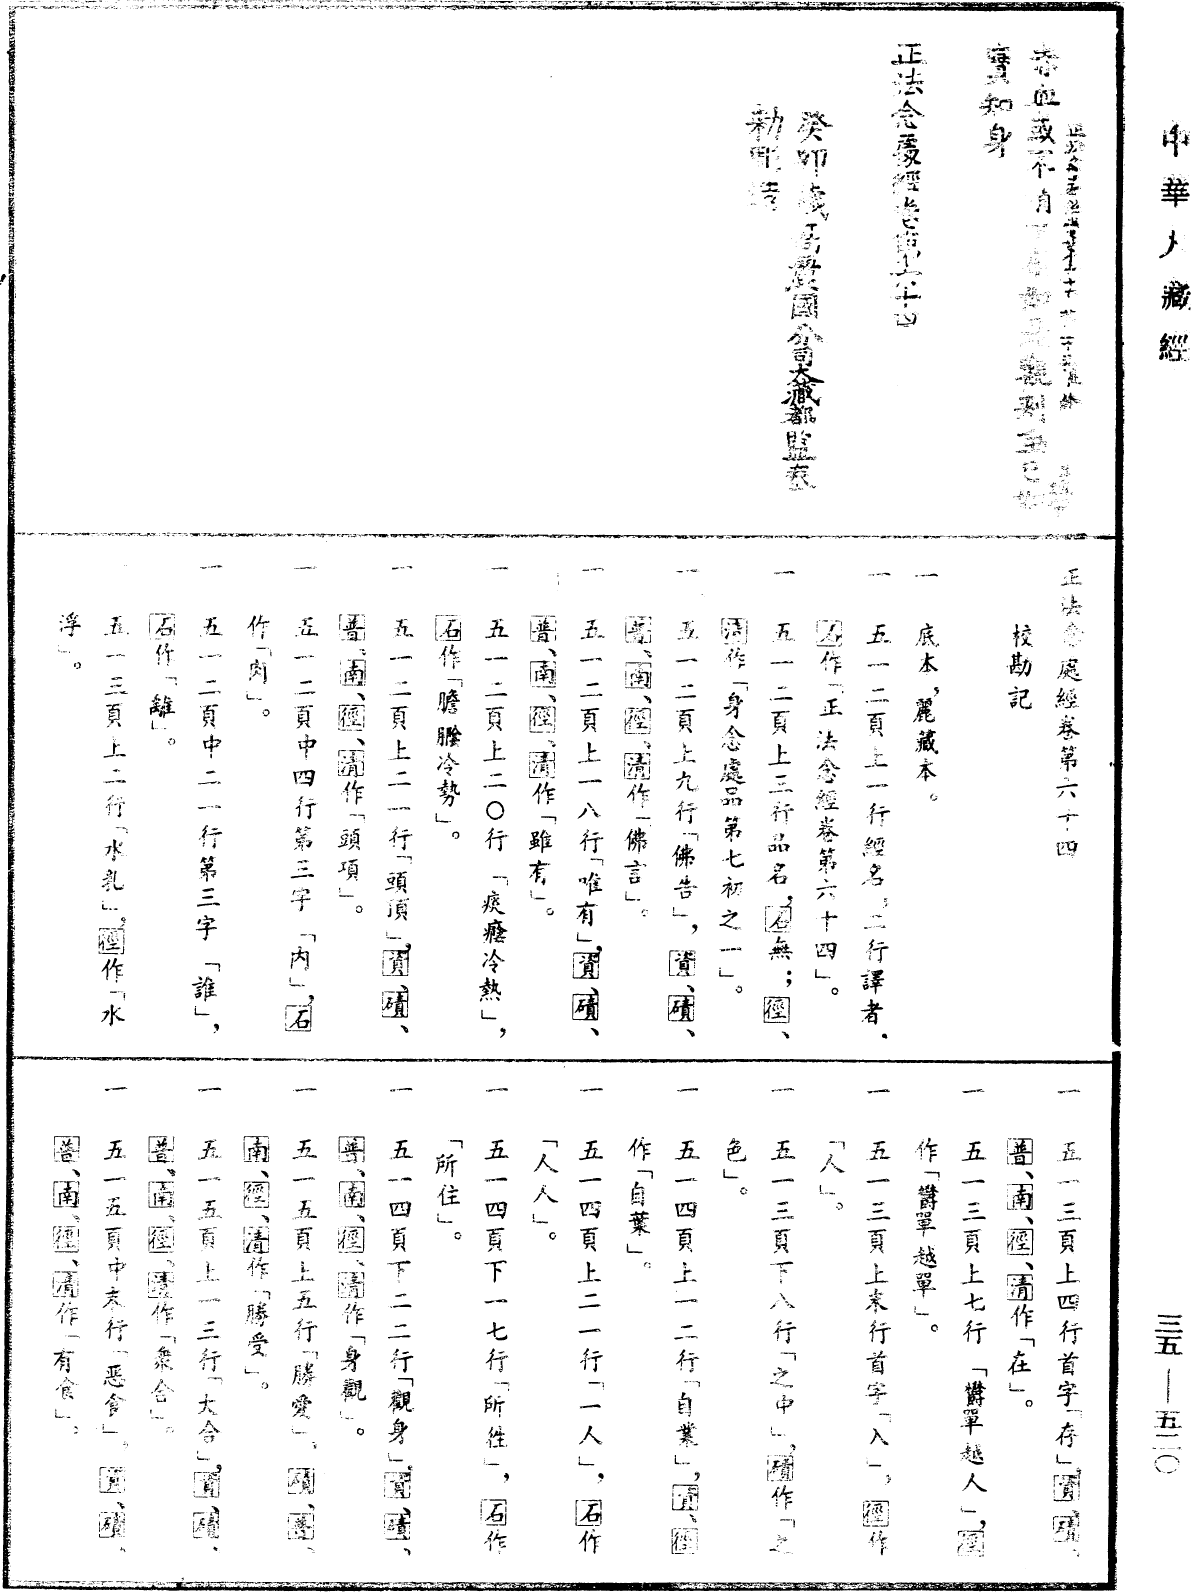 中華大藏經
赤血或不消
實知身
正法念處經卷第六十四
癸卯歲高麗國分司大藏都監奉
勅雕造
正法念處經卷第六十四
校勘記
一 底本,麗藏本。
一 五一二頁上一行經名,二行譯者,
石作「正法念經卷第六十四」。
一 五一二頁上三行品名,石無;徑、
清作「身念處品第七初之一」。
一 五一二頁上九行「佛告」,資、磧、
普、南、徑、清作「佛言」。
一 五一二頁上一八行「唯有」,資、磧、
普、南、徑、清作「雖有」。
一 五一二頁上二〇行「痰癊冷熱」,
石作「膽膸冷勢」。
一 五一二頁上二一行「頭頂」,資、磧、
普、南、徑、清作「頭項」。
一 五一二頁中四行第三字「內」,石
作「肉」。
一 五一二頁中二一行第三字「誰」,
石作「離」。
一 五一三頁上二行「水乳」,徑作「水
浮」。
一 五一三頁上四行首字「存」,資、磧、
普、南、徑、清作「在」。
一 五一三頁上七行「欝單越人」,徑
作「欝單越單」。
一 五一三頁上末行首字「入」,徑作
「人」。
一 五一三頁下八行「之中」,磧作「之
色」。
一 五一四頁上一二行「自業」,資、徑
作「自葉」。
一 五一四頁上二一行「一人」,石作
「人人」。
一 五一四頁下一七行「所往」,石作
「所住」。
一 五一四頁下二二行「觀身」,資、磧、
普、南、徑、清作「身觀」。
一 五一五頁上五行「勝愛」,磧、普、
南、徑、清作「勝受」。
一 五一五頁上一三行「大合」,資、磧、
普、南、徑、清作「衆合」。
一 五一五頁中末行「惡食」,資、磧、
普、南、徑、清作「有食」。
三五—五二〇